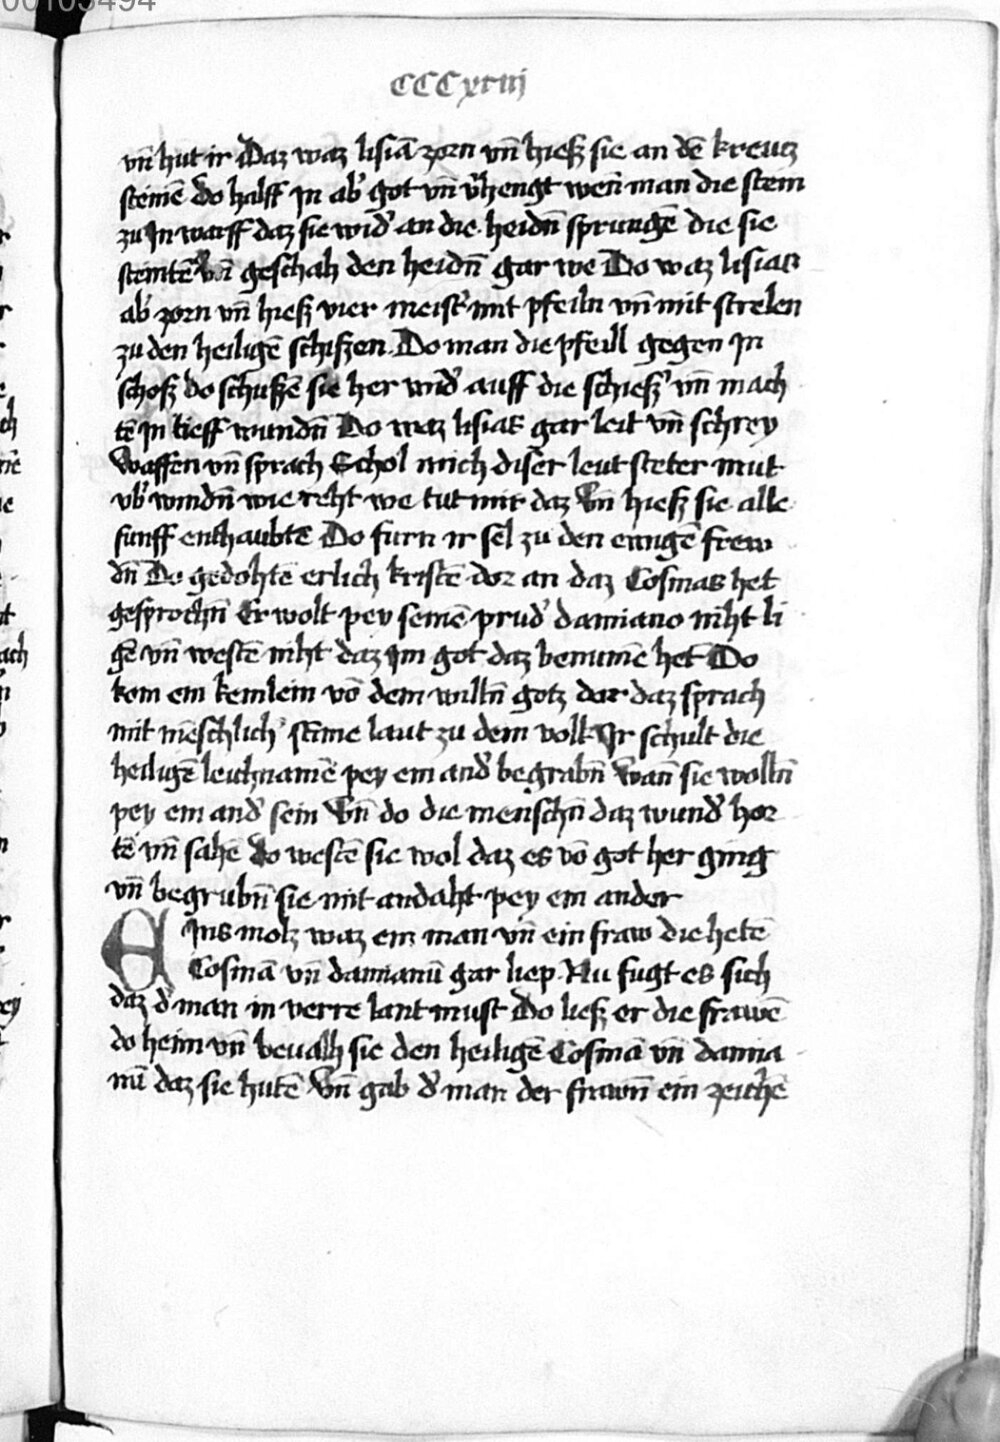 00103494
CCCxciiij
vn̄ hut ir Daz waz lisiā zorn vn̄ hieß sie an dē kreutz
steinē do halff In ab' got vn̄ v'hengt wen̄ man die stein
zu In warff daz sie wid' an die heidn̄ sprungē die sie
steintē vn̄ geschah den heidn̄ gar we Do waz lisias
ab' zorn vn̄ hieß vier meist' mit pfeiln vn̄ mit strelen
zu den heiligē schißen Do man die pfeill gegen In
schoß do schußē sie her wid' auff die schieß' vn̄ mach
tē In tieff wundn̄ Do waz lisias gar leit vn̄ schrey
Waffen vn̄ sprach Schol mich diser leut steter mut
vb' windn̄ wie reht we tut mir daz Vn̄ hieß sie alle
funff enthaubtē Do furn ir sel zu den ewigē frew
dn̄ Do gedohtē erlich kristē dor an daz Cosmas het
gesprochn̄ Er wolt pey seinē prud' damiano niht li
gē vn̄ westē niht daz Im got daz benumē het Do
kom ein kemlein vō dem willn̄ gotz dar daz sprach
mit mēschlich' stīme laut zu dem volk Ir schult die
heiligē leichnamē pey ein and' begrabn̄ Wan̄ sie wolln̄
pey ein and' sein Vn̄ do die menschn̄ daz wund' hor
tē vn̄ sahē do westē sie wol daz es vō got her ging
vn̄ begrubn̄ sie mit andaht pey ein ander
EIns molz waz ein man vn̄ ein fraw die hetē
Cosmā vn̄ damianū gar liep Nu fugt es sich
daz d' man in verre lant must Do ließ er die frawē
do heim vn̄ beualh sie den heiligē Cosmā vn̄ damia
nū daz sie hutē Vn̄ gab d' man der frawn̄ ein zeichē